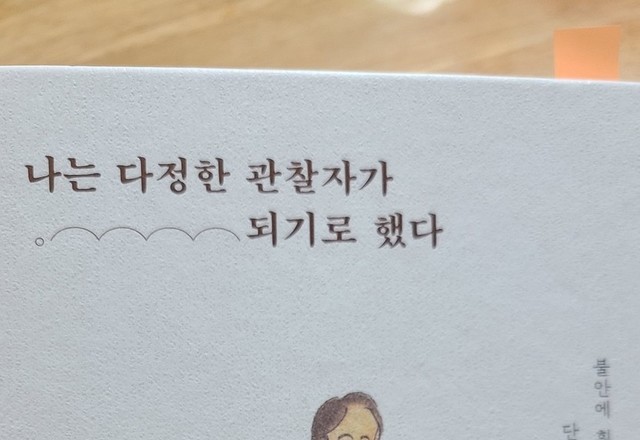 나는 다정한 관찰자가
되기로 했다
불안에